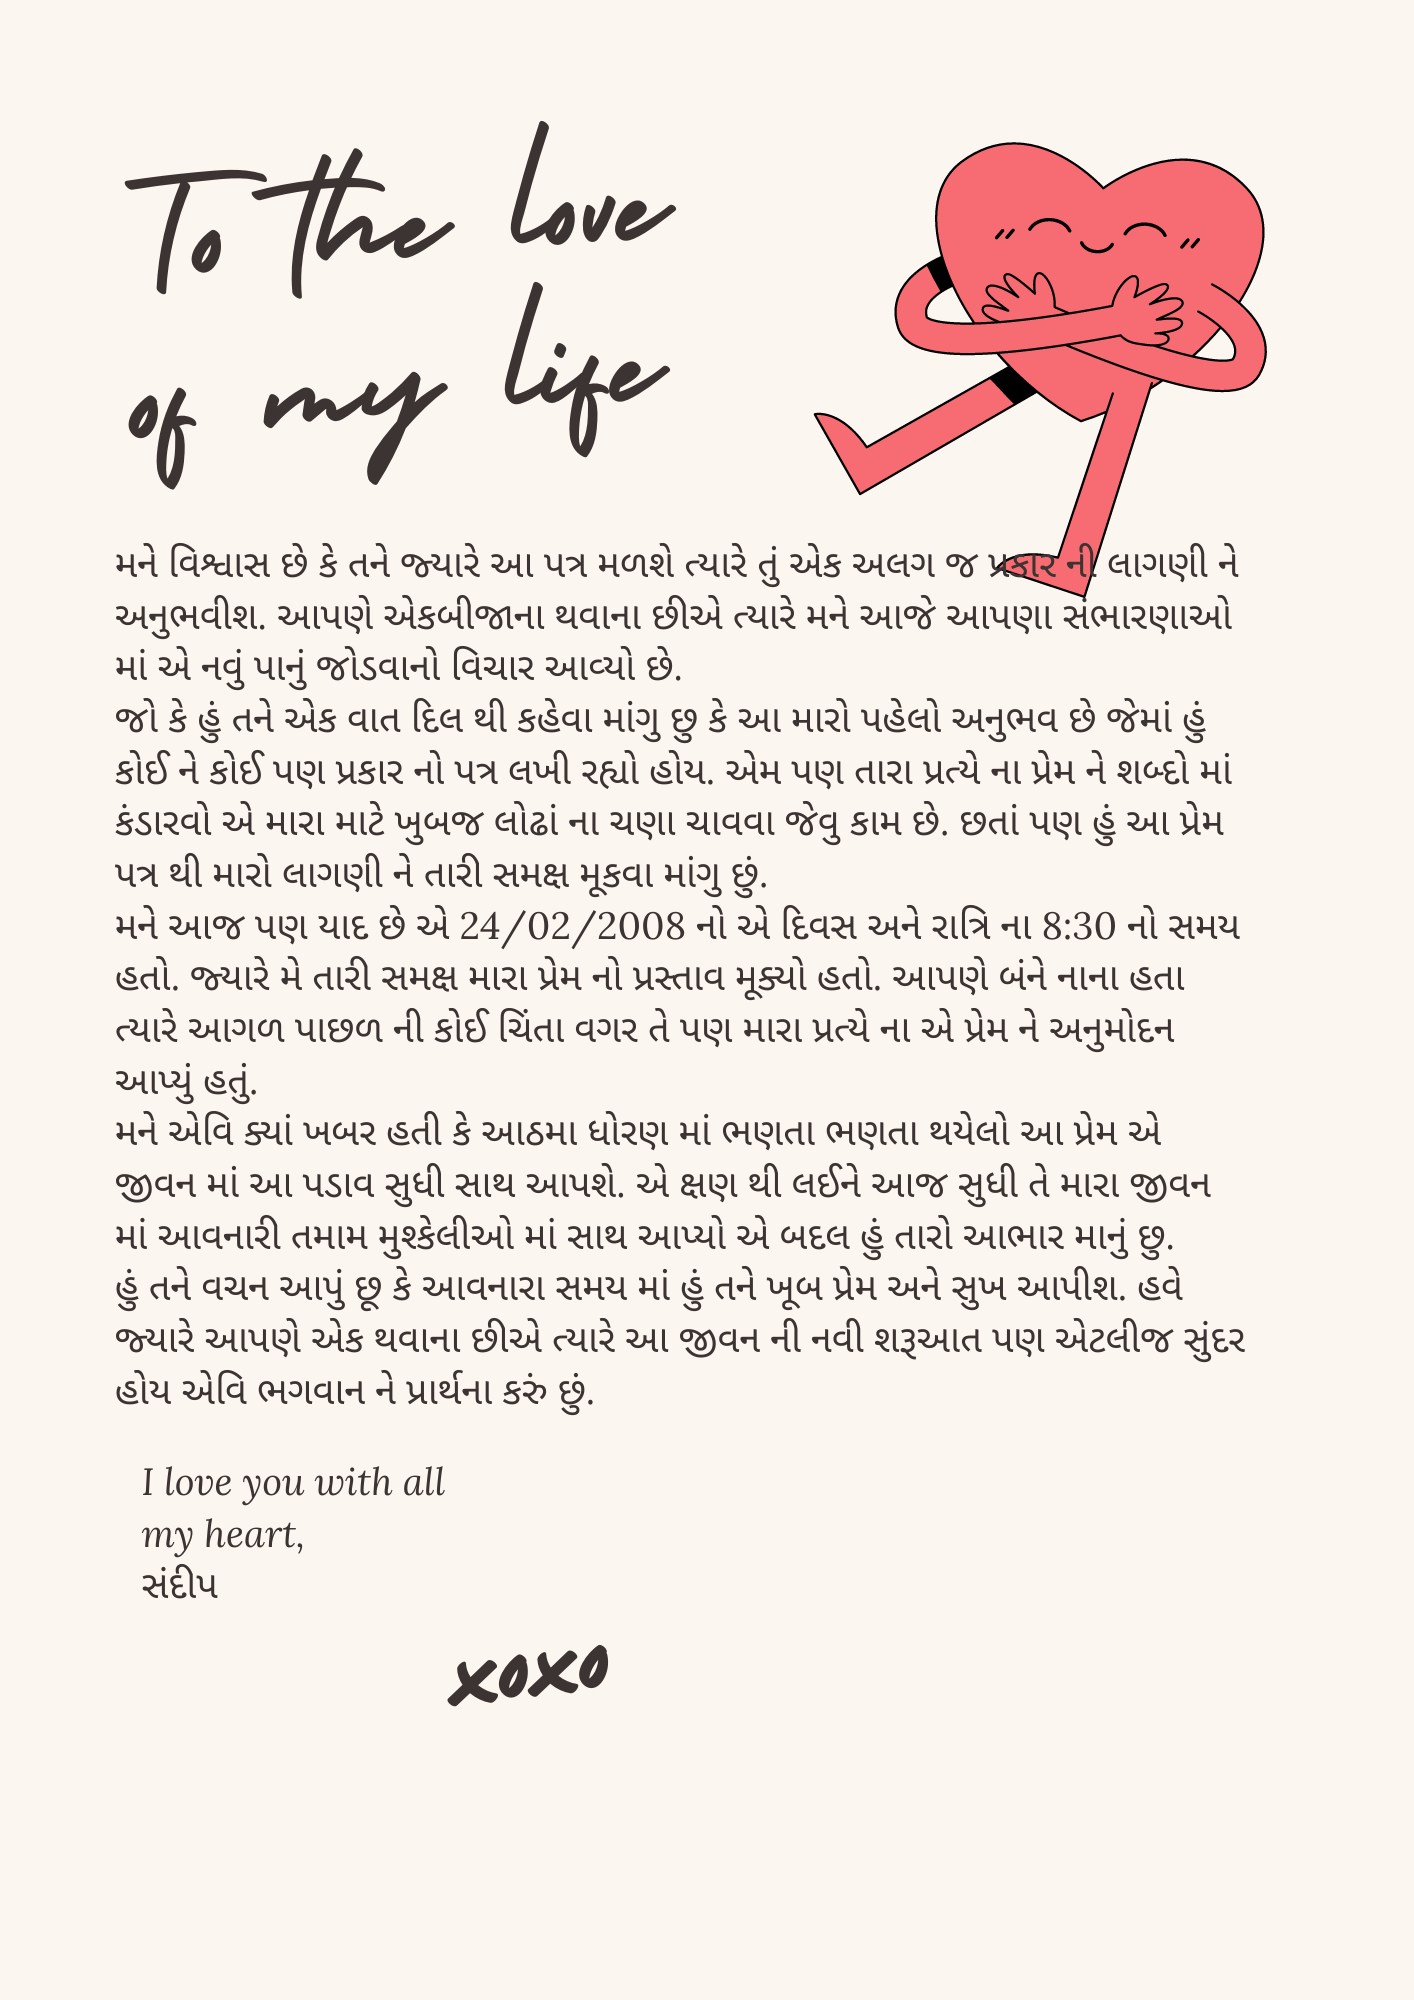 To the love
of my life
મને વિશ્વાસ છે કે તને જ્યારે આ પત્ર મળશે ત્યારે તું એક અલગ જ પ્રકાર ની લાગણી ને
અનુભવીશ. આપણે એકબીજાના થવાના છીએ ત્યારે મને આજે આપણા સંભારણાઓ
માં એ નવું પાનું જોડવાનો વિચાર આવ્યો છે.
જો કે હું તને એક વાત દિલ થી કહેવા માંગુ છુ કે આ મારો પહેલો અનુભવ છે જેમાં હું
કોઈ ને કોઈ પણ પ્રકાર નો પત્ર લખી રહ્યો હોય. એમ પણ તારા પ્રત્યે ના પ્રેમ ને શબ્દો માં
કંડારવો એ મારા માટે ખુબજ લોઢાં ના ચણા ચાવવા જેવુ કામ છે. છતાં પણ હું આ પ્રેમ
પત્ર થી મારો લાગણી ને તારી સમક્ષ મૂકવા માંગુ છું.
મને આજ પણ યાદ છે એ 24/02/2008 નો એ દિવસ અને રાત્રિ ના 8:30 નો સમય
હતો. જ્યારે મે તારી સમક્ષ મારા પ્રેમ નો પ્રસ્તાવ મૂક્યો હતો. આપણે બંને નાના હતા
ત્યારે આગળ પાછળ ની કોઈ ચિંતા વગર તે પણ મારા પ્રત્યે ના એ પ્રેમ ને અનુમોદન
આપ્યું હતું.
મને એવિ ક્યાં ખબર હતી કે આઠમા ધોરણ માં ભણતા ભણતા થયેલો આ પ્રેમ એ
જીવન માં આ પડાવ સુધી સાથ આપશે. એ ક્ષણ થી લઈને આજ સુધી તે મારા જીવન
માં આવનારી તમામ મુશ્કેલીઓ માં સાથ આપ્યો એ બદલ હું તારો આભાર માનું છુ.
હું તને વચન આપું છૂ કે આવનારા સમય માં હું તને ખૂબ પ્રેમ અને સુખ આપીશ. હવે
જ્યારે આપણે એક થવાના છીએ ત્યારે આ જીવન ની નવી શરૂઆત પણ એટલીજ સુંદર
હોય એવિ ભગવાન ને પ્રાર્થના કરું છું.
I love you with all
my heart,
સંદીપ
xoxo